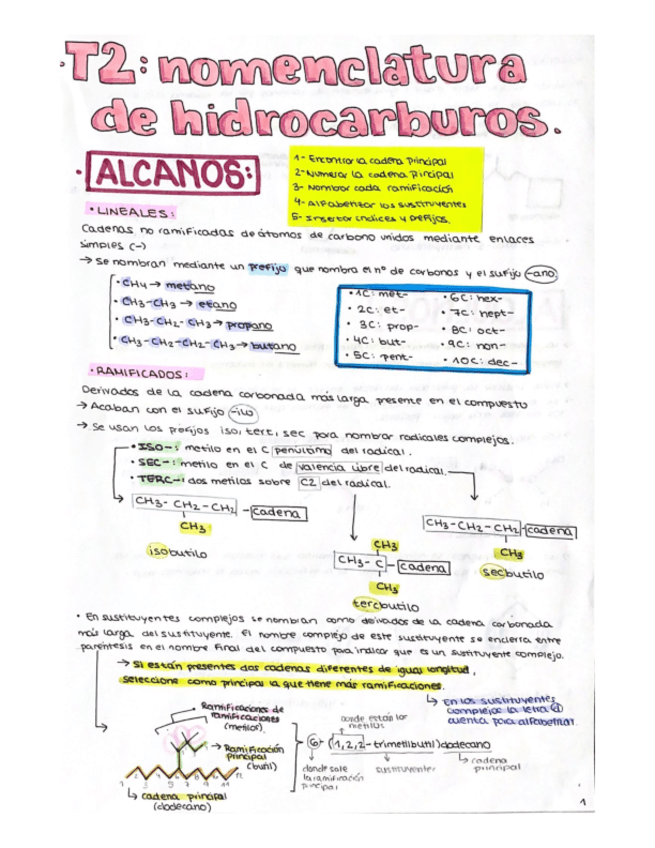 ·T2: nomenclatura
de hidrocarburos.
· ALCANOS:
1- Encontrar la cadena principal
2- Numerar la cadena Pirncipal
3- Nombrar cada ramificación
4- Alfabetizar los sustituyentes
5- Insertar índices y prefijos.
· LINEALES:
Cadenas no ramificadas de átomos de carbono unidos mediante enlaces
simples (-)
→ Se nombran mediante un prefijo que nombra el nº de carbonos y el sufijo -ano.
· CH4 → metano
· CH3-CH3 → etano
· CH3-CH2-CH3 → propano
· CH3-CH2-CH2-CH3 → butano
· 1C: met-
· 2C: et-
· 3C: prop-
· 4C: but-
· 5C: pent-
· 6C: hex-
· 7C: hept-
· 8C: oct-
· 9C: non-
· 10C: dec-
· RAMIFICADOS:
Derivados de la cadena carbonada más larga presente en el compuesto
→ Acaban con el sufijo -ilo
→ Se usan los prefijos iso, tert, sec para nombrar radicales complejos.
· ISO-: metilo en el C penúltimo del radical.
· SEC-: metilo en el C de valencia libre del radical.
· TERC-: dos metilos sobre C2 del radical.
CH3-CH2-CH2-cadena
CH3
isobutilo
CH3
CH3-C-cadena
CH3
tercbutilo
CH3-CH2-CH2-cadena
CH3
secbutilo
· En sustituyentes complejos se nombran como derivados de la cadena carbonada
más larga del sustituyente. El nombre complejo de este sustituyente se encierra entre
paréntesis en el nombre final del compuesto para indicar que es un sustituyente complejo.
→ Si están presentes dos cadenas diferentes de igual longitud,
seleccione como principal la que tiene más ramificaciones.
↳ En los sustituyentes
complejos la letra d
cuenta para alfabetizar.
Ramificaciones de
ramificaciones
(metilos)
→ Ramificación
principal
(butil)
1 3 5 7 9 11 12
↳ cadena principal
(dodecano)
donde están los
metilos
6-(1,2,2-trimetilbutil)dodecano
donde sale
la ramificación
principal
sustituyentes
↳ cadena
principal
1